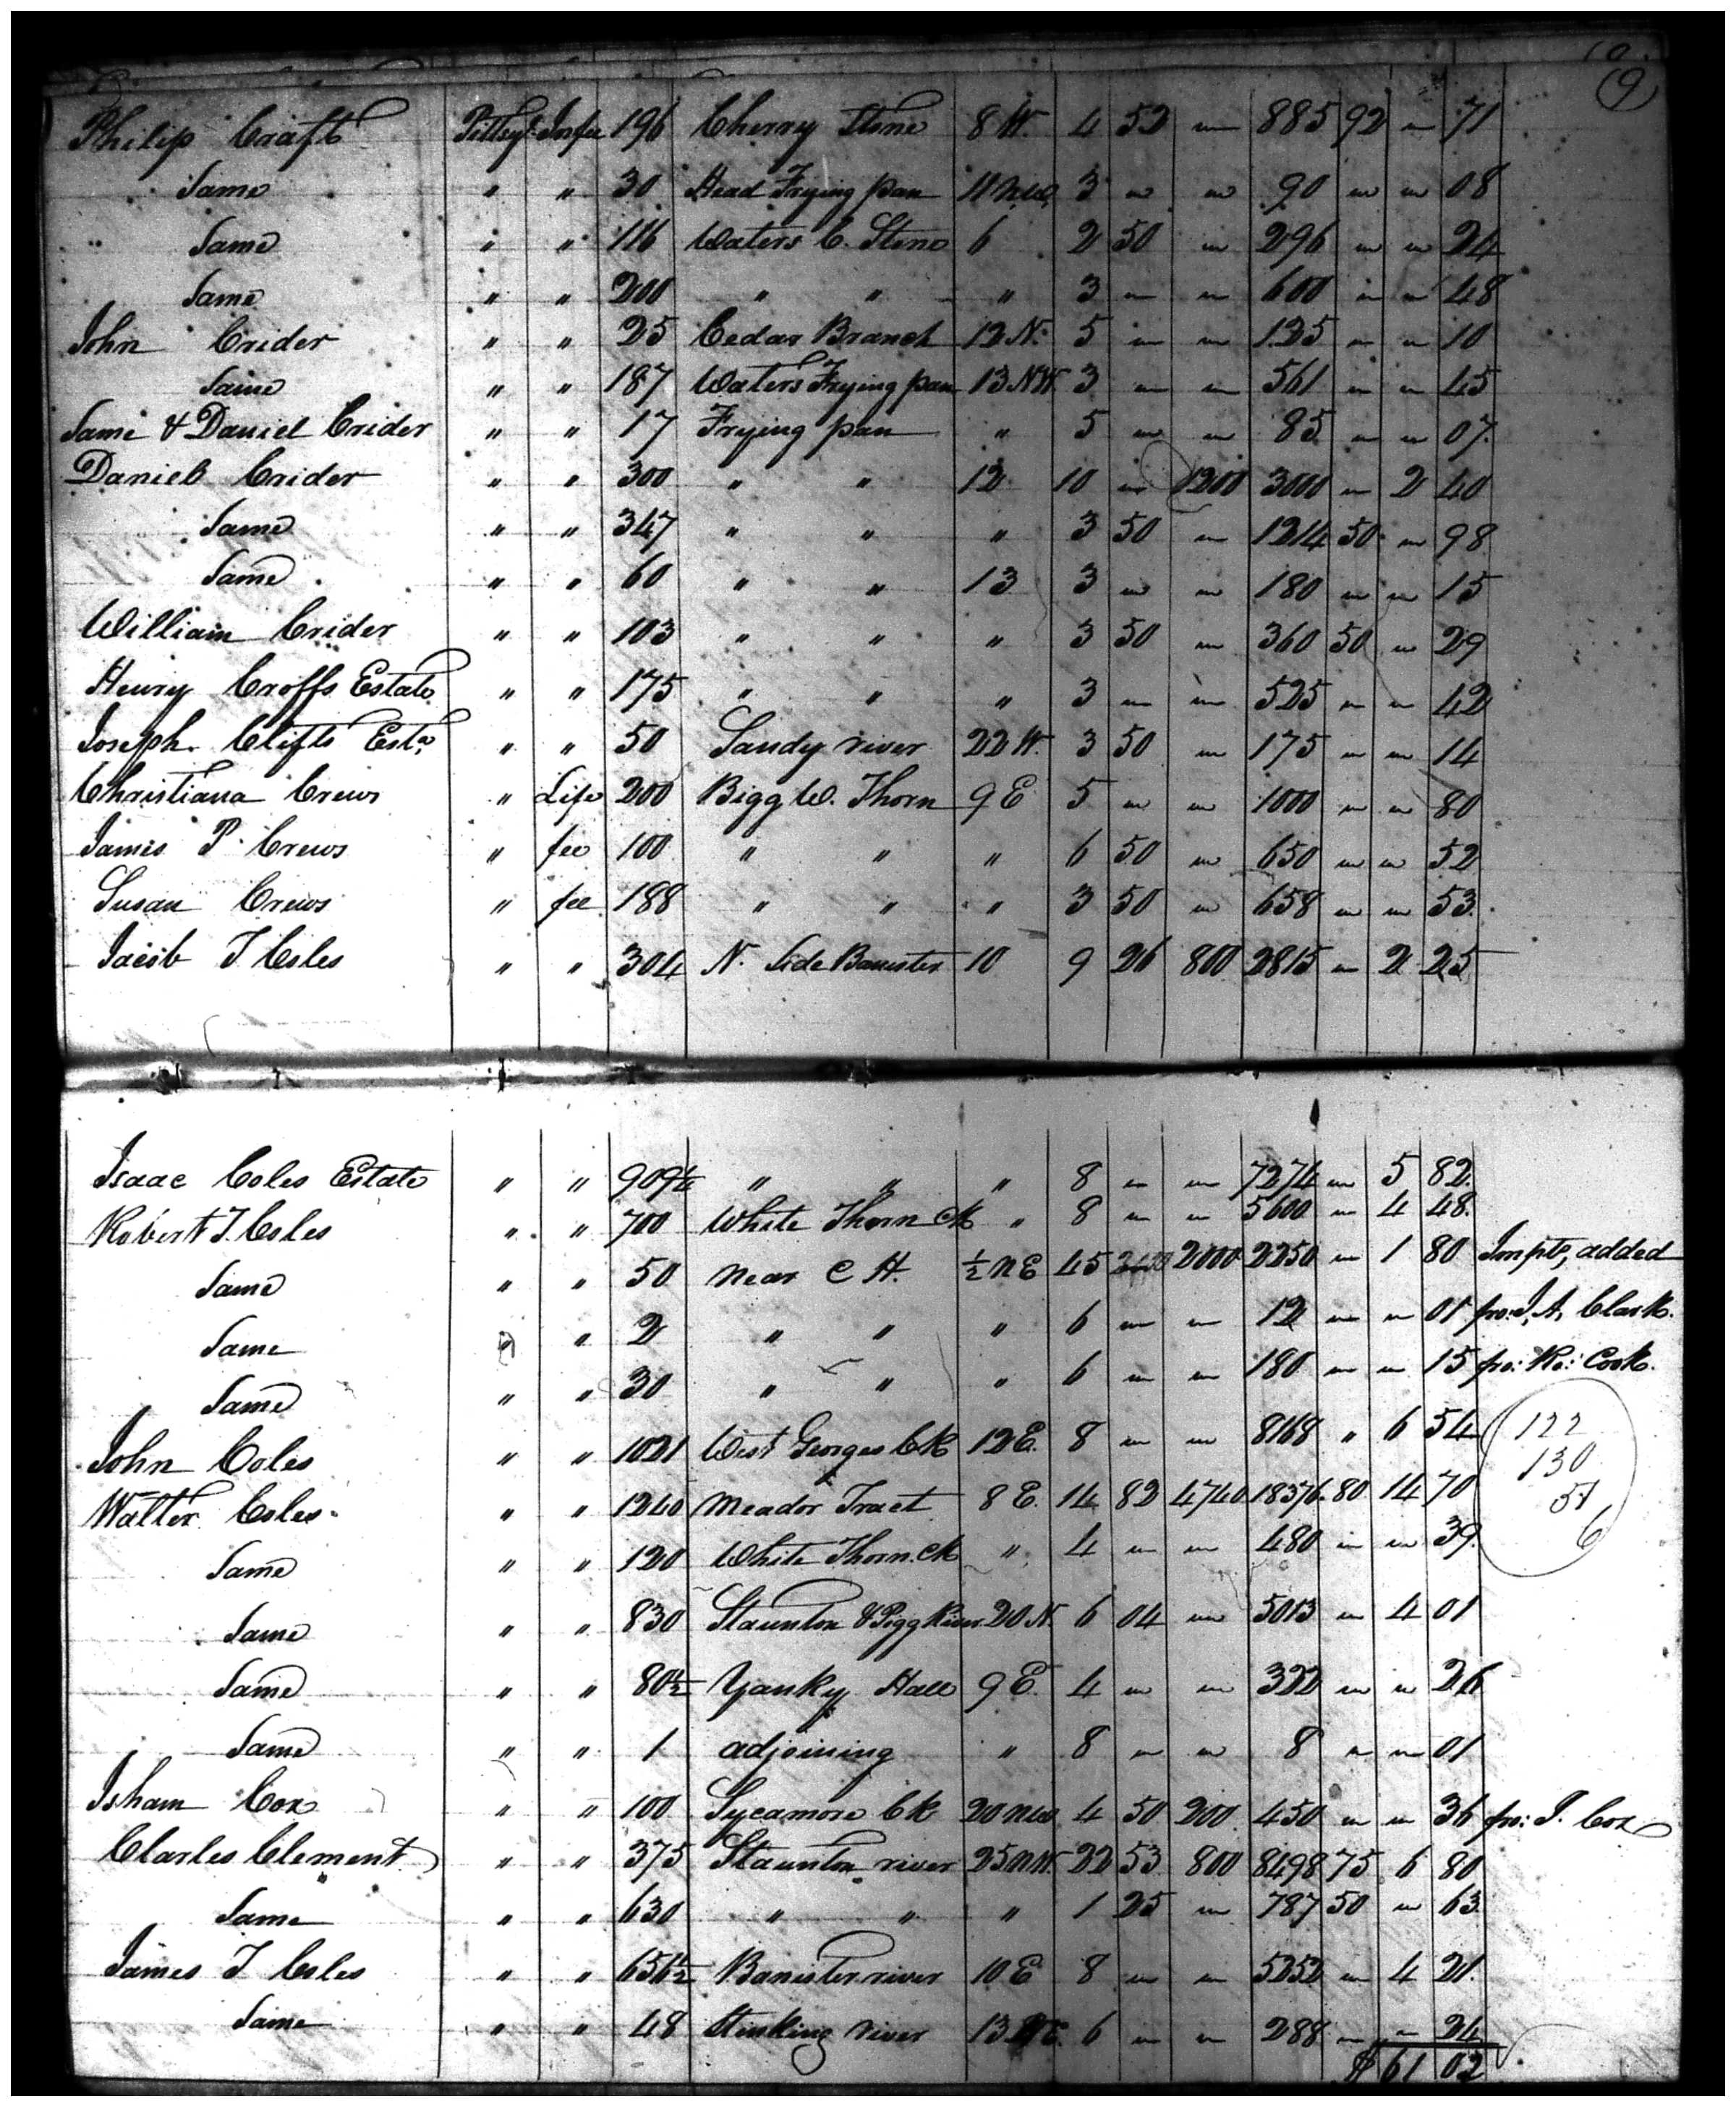 19
Philip Craft Pittsy: In fee 196 Cherry Stone 8 W. 4 52 " 885 92 " 71
Same " " 30 Head Frying pan 11 NW. 3 " " 90 " " 08
Same " " 116 Waters C. Stone 6 2 50 " 296 " " 24
Same " " 200 " " " 3 " " 600 " " 48
John Crider " " 25 Cedar Branch 12 N. 5 " " 125 " " 10
Same " " 187 Waters Frying pan 13 NW. 3 " " 561 " " 45
Same & Daniel Crider " " 17 Frying pan " 5 " " 85 " " 07
Daniel Crider " " 300 " " 12 10 " 1200 3000 " 2 40
Same " " 347 " " " 3 50 " 1214 50 " 98
Same " " 60 " " 13 3 " " 180 " " 15
William Crider " " 103 " " " 3 50 " 360 50 " 29
Henry Croffs Estate " " 175 " " " 3 " " 525 " " 42
Joseph Clifts Esta. " " 50 Sandy river 22 W. 3 50 " 175 " " 14
Christiana Crews " Life 200 Bigg W. Thorn 9 E 5 " " 1000 " " 80
James P. Crews " fee 100 " " " 6 50 " 650 " " 52
Susan Crews " fee 188 " " " 3 50 " 658 " " 53
Jacob T Coles " " 304 N. Side Banister 10 9 26 800 2815 " 2 25
Isaac Coles Estate " " 909¼ " " " 8 " " 7274 " 5 82
Robert T. Coles " " 700 White Thorn Ck " 8 " " 5600 " 4 48
Same " " 50 Near C H. ½ NE 45 2000 2250 " 1 80 Impts, added
Same " " 2 " " " 6 " " 12 " " 01 fro: J, A, Clark.
Same " " 30 " " " 6 " " 180 " " 15 fro: Ro: Cook.
John Coles " " 1021 West Georges Ck 12 E. 8 " " 8168 " 6 54
122
130
57
6
Walter Coles " " 1240 Meador Tract 8 E. 14 82 4740 18376 80 14 70
Same " " 120 White Thorn Ck " 4 " " 480 " " 39
Same " " 830 Staunton & Pigg River 20 N. 6 04 " 5013 " 4 01
Same " " 80½ Yanky Hall 9 E. 4 " " 322 " " 26
Same " " 1 adjoining " 8 " " 8 " " 01
Isham Cox " " 100 Sycamore Ck 20 NW 4 50 200 450 " " 36 fro: J. Cox
Charles Clement " " 375 Staunton river 25 NW. 22 53 800 8498 75 6 80
Same " " 630 " " " 1 25 " 787 50 " 63
James T Coles " " 656½ Banister river 10 E 8 " " 5252 " 4 21
Same " " 48 Stinking river 13 6 " " 288 " " 24
$ 61 02